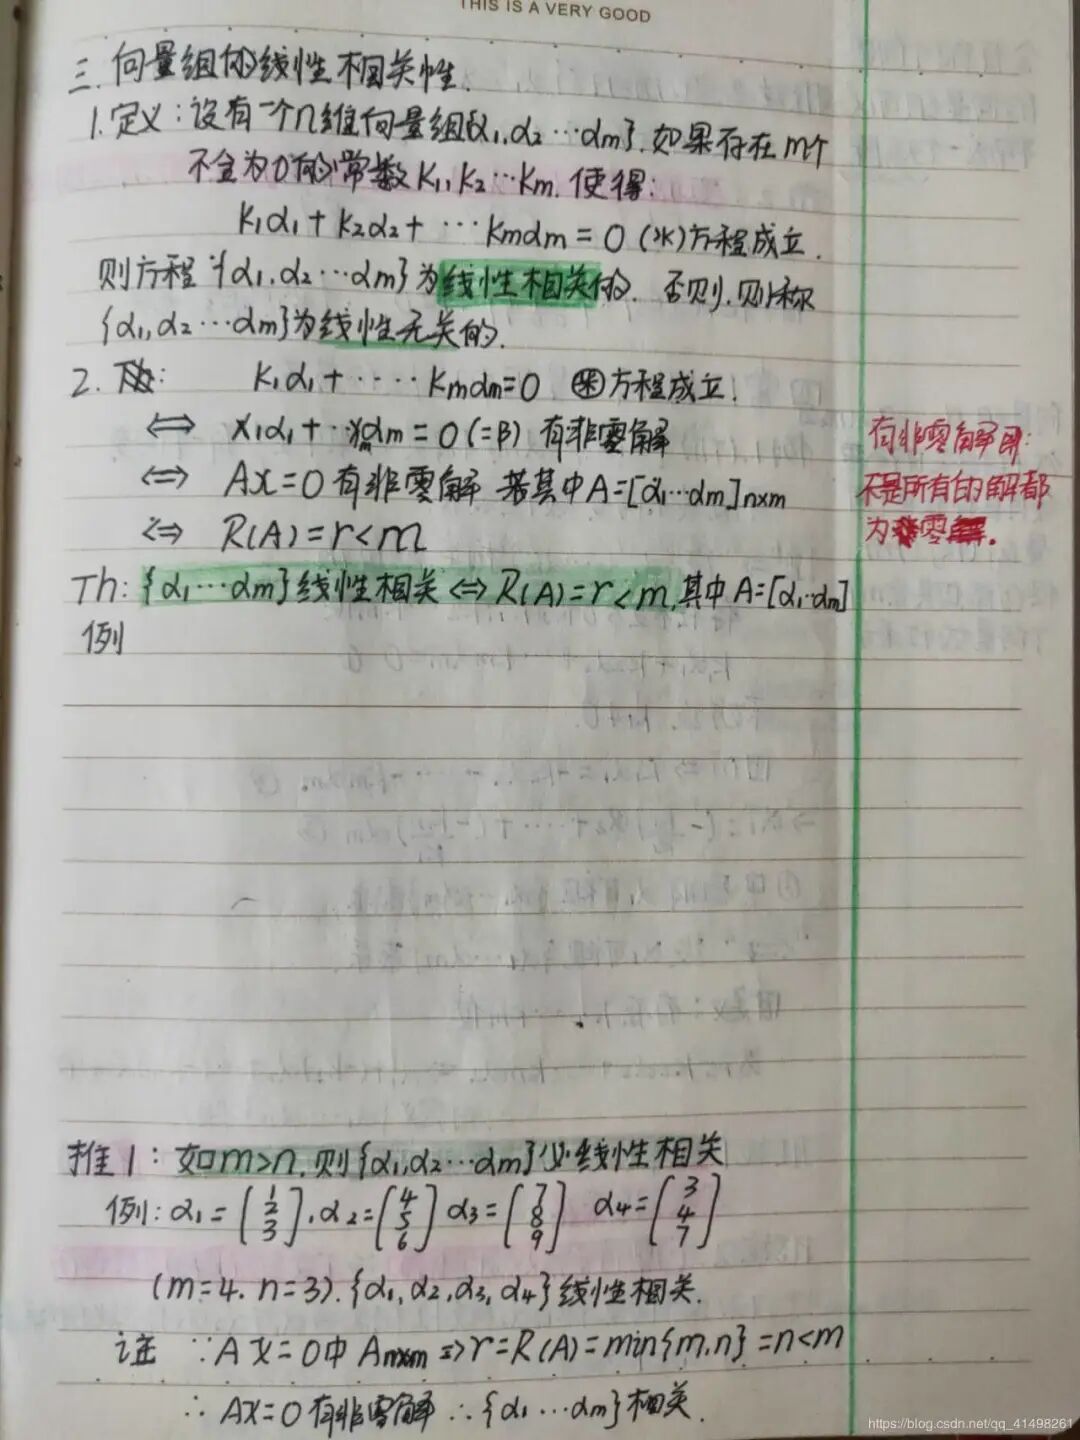 THIS IS A VERY GOOD
三.向量组的线性相关性.
1.定义:设有一个n维向量组{α₁,α₂…αm}.如果存在m个
不全为0的常数K₁,K₂…Km.使得:
K₁α₁+K₂α₂+…Kmαm=0(米)方程成立.
则方程:{α₁,α₂…αm}为线性相关的. 否则.则称
{α₁,α₂…αm}为线性无关的.
2. Th: K₁α₁+····Kmαm=0 ㊍方程成立!
⇔ X₁α₁+…Xmαm=0(=β) 有非零解
⇔ AX=0有非零解 若其中A=[α₁…αm]n×m
⇔ R(A)=r<m
有非零解即:
不是所有的解都
为零.
Th:{α₁…αm}线性相关⇔R(A)=r<m,其中A=[α₁…αm]
例
推1:如m>n,则{α₁,α₂…αm}必线性相关
例:α₁=[1 2 3],α₂=[4 5 6] α₃=[7 8 9] α₄=[3 4 7]
(m=4. n=3).{α₁,α₂,α₃,α₄}线性相关.
注 ∵AX=0中An×m⇒r=R(A)=min{m,n}=n<m
∴AX=0有非零解∴{α₁…αm}相关.
https://blog.csdn.net/qq_41498261